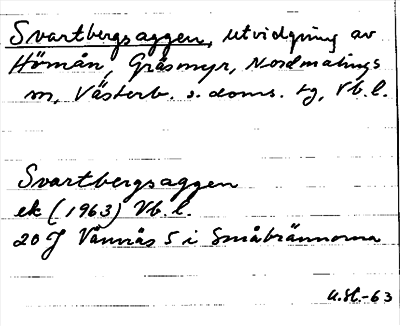 Svartbergsaggen, utvidgning av
Hömån, Gräsmyr, Nordmalings
sn, Västerb. s. doms. tg, Vb. l.
Svartbergsaggen
ek (1963) Vb. l.
20 J Vännäs 5 i Småbrännorna
U.St.-63